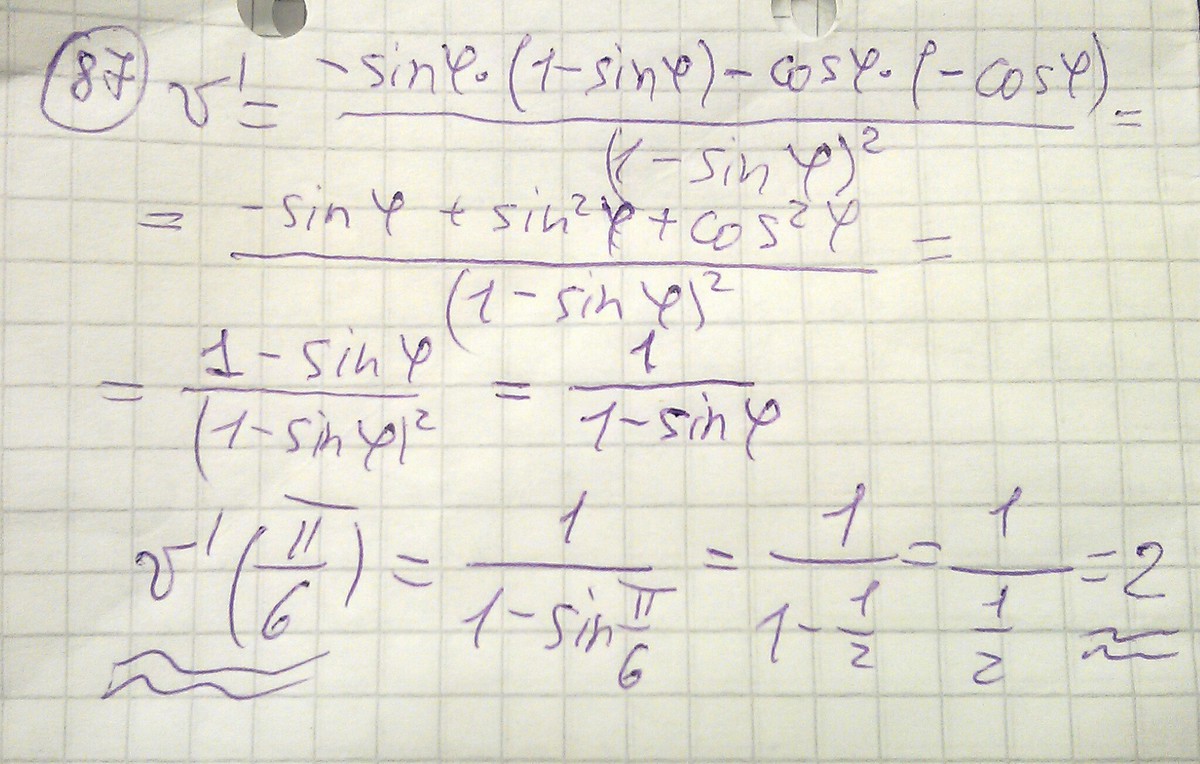 87 v' = (-sinφ·(1-sinφ)-cosφ·(-cosφ))/(1-sinφ)² =
= (-sinφ + sin²φ + cos²φ)/(1-sinφ)² =
= (1-sinφ)/(1-sinφ)² = 1/(1-sinφ)
v'(π/6) = 1/(1-sin π/6) = 1/(1-1/2) = 1/(1/2) = 2